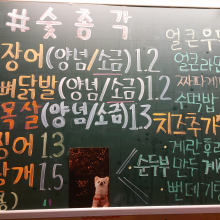 #숯총각
장어(양념/소금)1.2
뼈닭발(양념/소금)1.2
목살(양념/소금)13
징어 1.3
랑개 1.5
얼큰우
얼큰라
짜파게
수먼밥
치즈추가
계란후라
순두부 만두 계
뻔데기